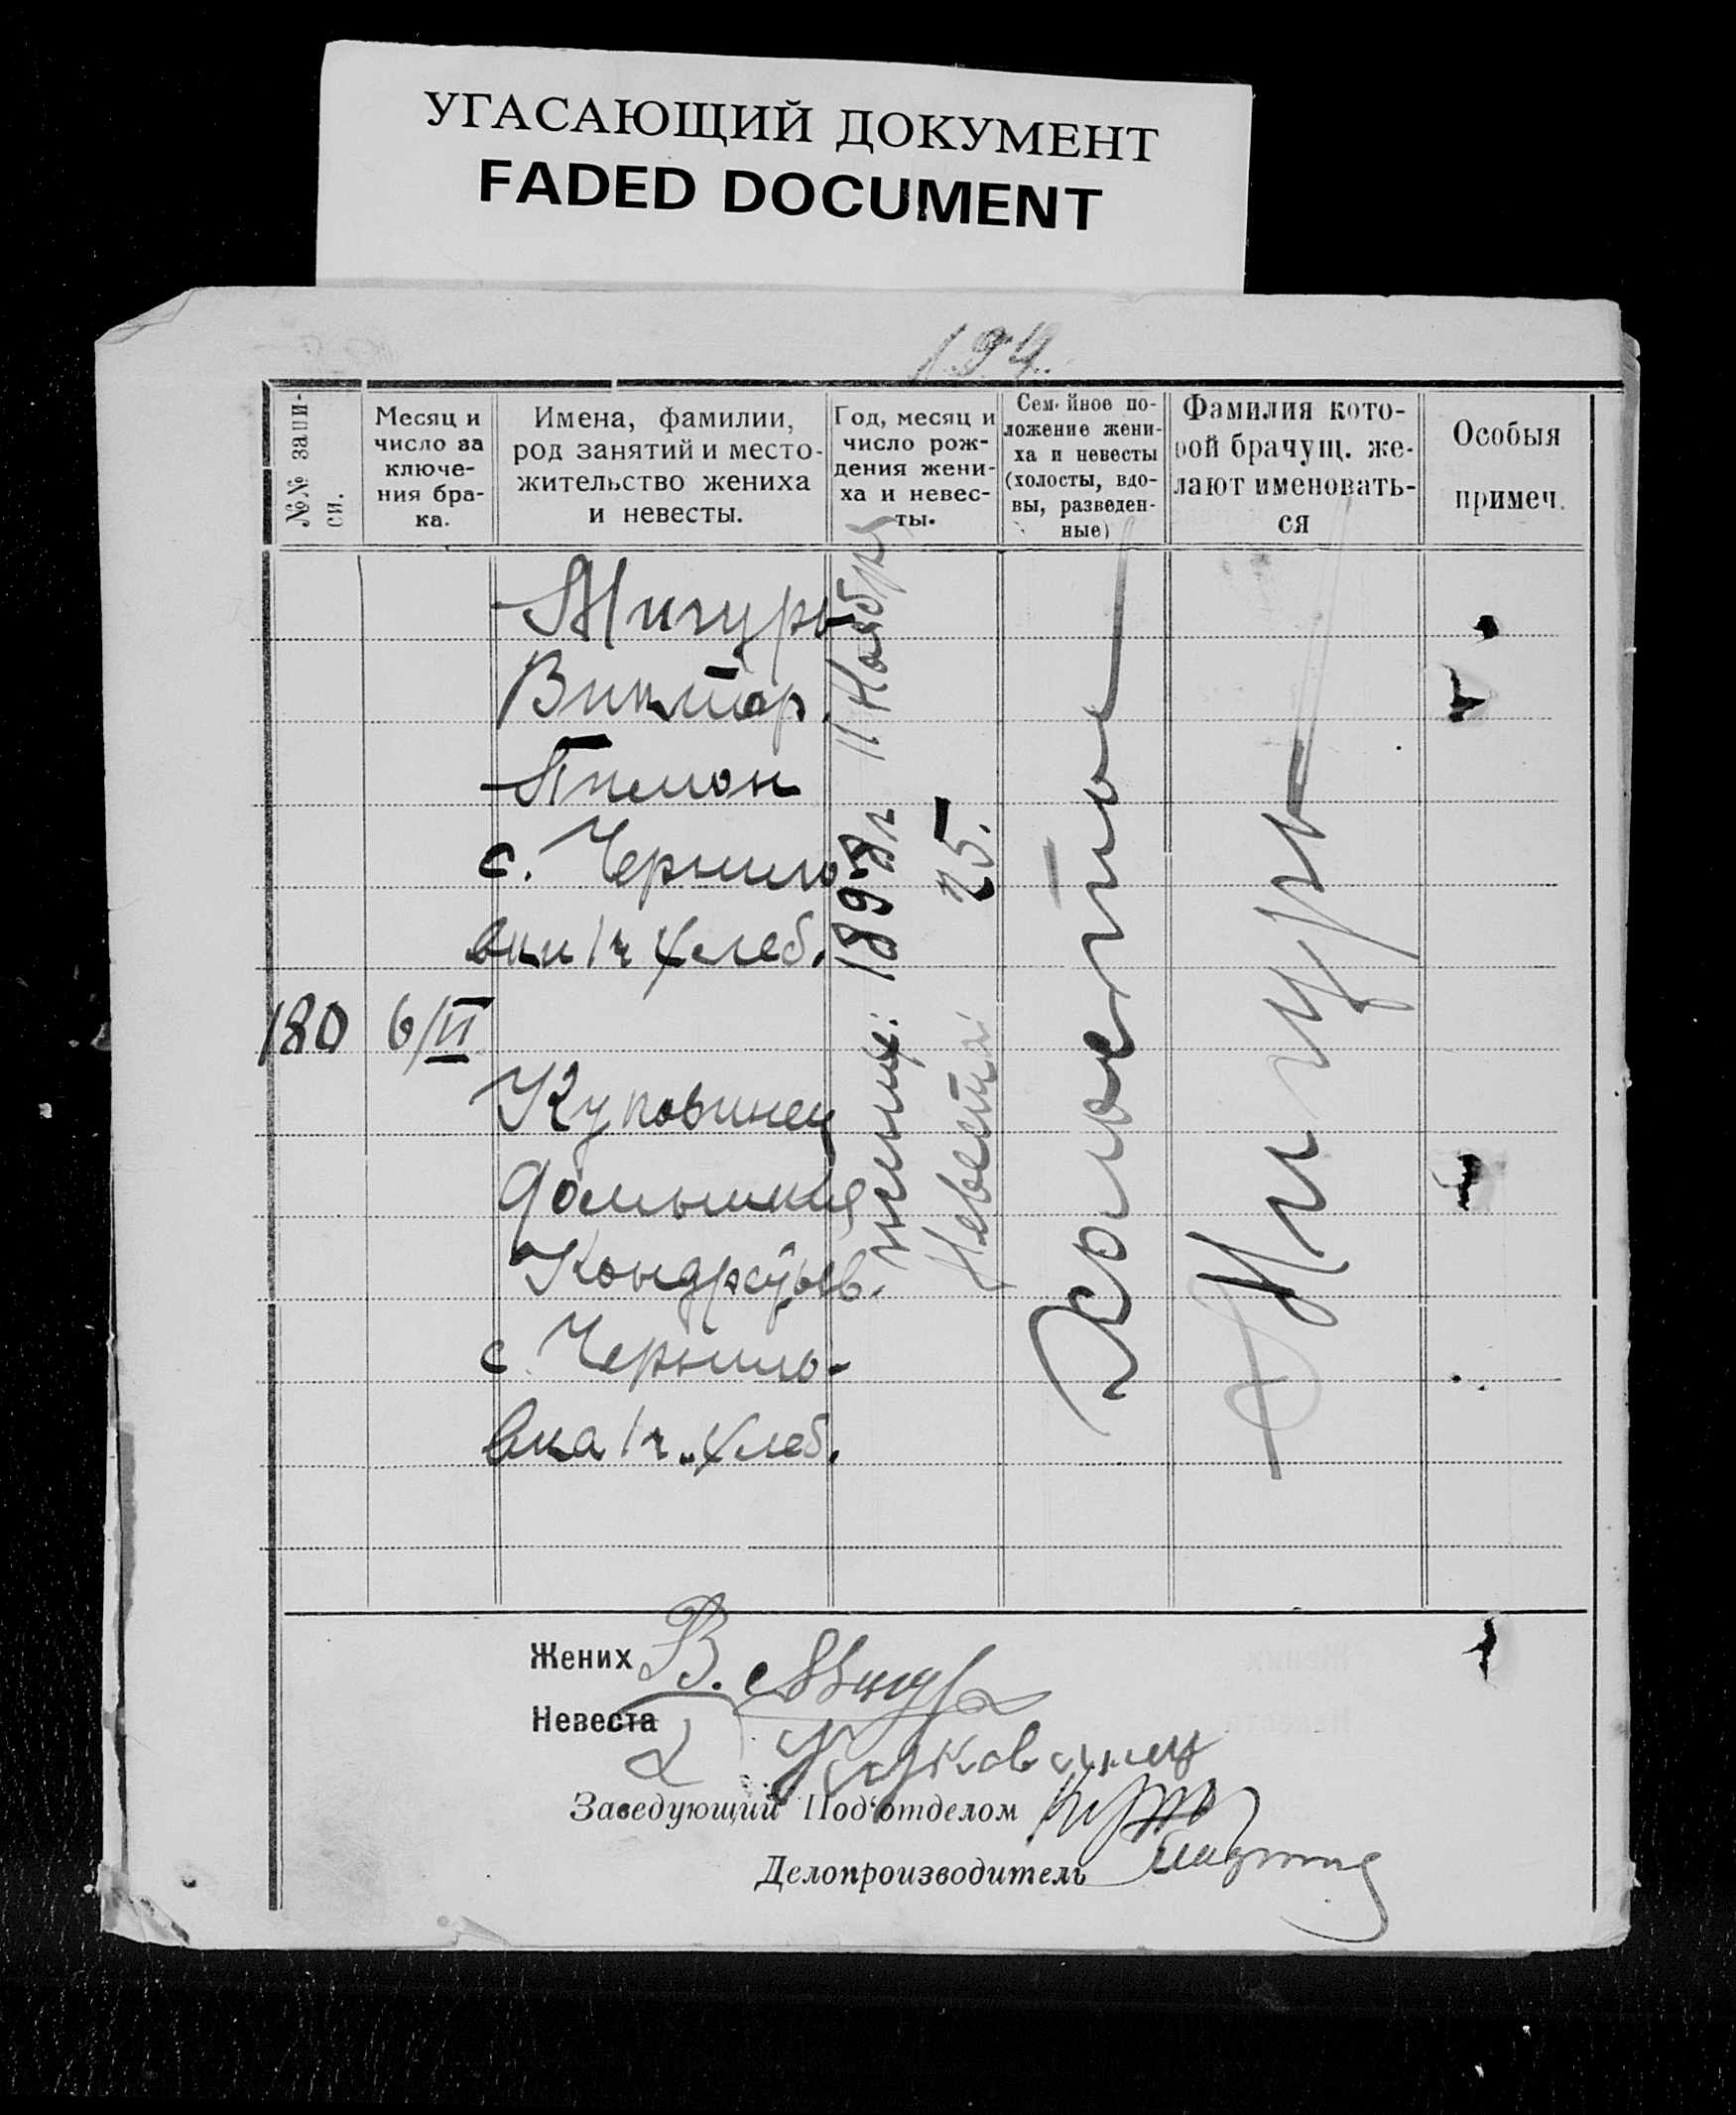 УГАСАЮЩИЙ ДОКУМЕНТ
FADED DOCUMENT
194.
№№ запи-
си.
Месяц и
число за
ключе-
ния бра-
ка.
Имена, фамилии,
род занятий и место-
жительство жениха
и невесты.
Год, месяц и
число рож-
дения жени-
ха и невес-
ты.
Семейное по-
ложение жени-
ха и невесты
(холосты, вдо-
вы, разведен-
ные)
Фамилия кото-
рой брачущ. же-
лают именовать-
ся
Особыя
примеч.
180
6/VI
Мигурь
Виктор
с. Чернило
вки 1ч хлеб.
Куковинец
Кондратьев.
с. Чернило-
вка 1ч. хлеб.
1898г 11 Ноября
Невеста 25.
Холостые
Мигурь
Жених В. Мигур
Невеста Куковинец
Заведующий Под‘отделом
Делопроизводитель